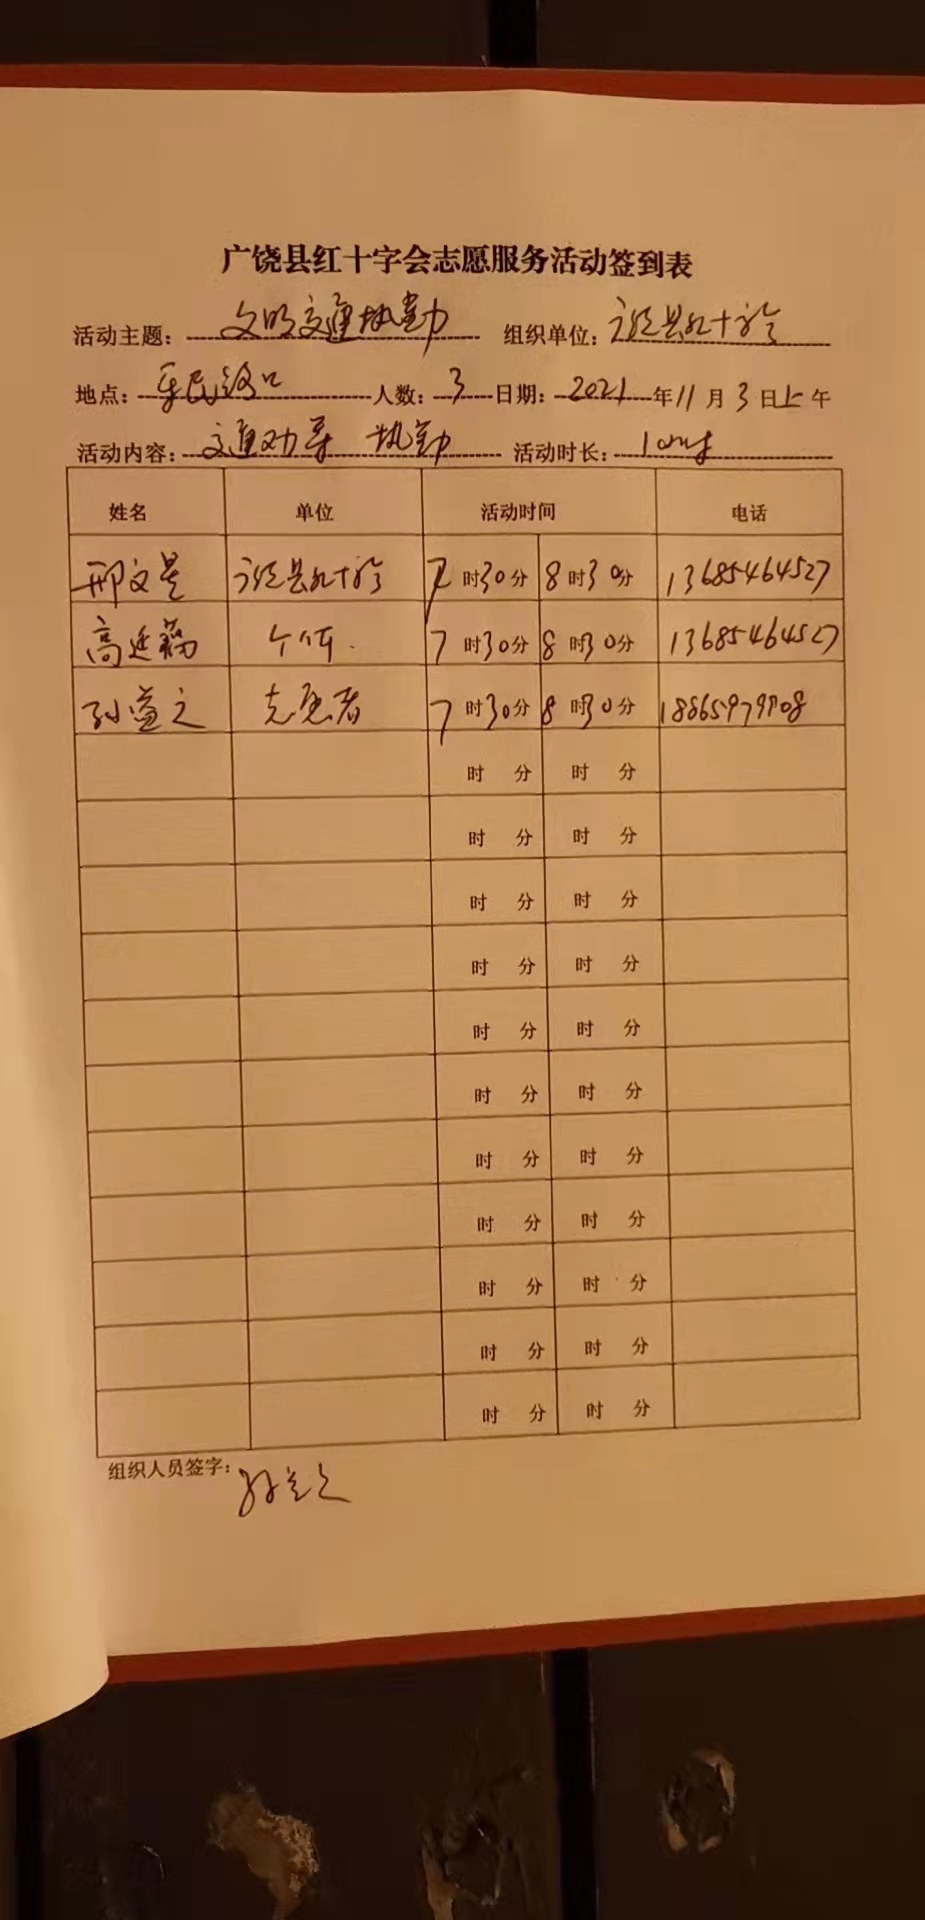 广饶县红十字会志愿服务活动签到表
活动主题: 文明交通执勤 组织单位: 广饶县红十字会
地点: 乐民路口 人数: 3 日期: 2021 年 11 月 3 日 上午
活动内容: 交通劝导 执勤 活动时长: 1小时
姓名 单位 活动时间 电话
邢文昊 广饶县红十字会 7时30分 8时30分 13685464527
高延 个体. 7时30分 8时30分 13685464527
孙益之 志愿者 7时30分 8时30分 18865979908
时 分 时 分
时 分 时 分
时 分 时 分
时 分 时 分
时 分 时 分
时 分 时 分
时 分 时 分
时 分 时 分
时 分 时 分
时 分 时 分
时 分 时 分
组织人员签字: 孙益之